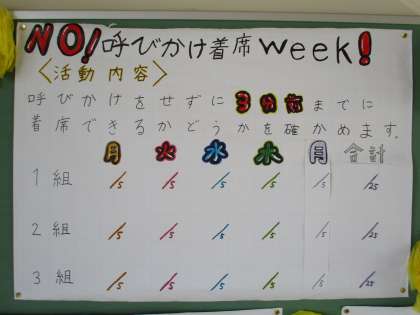 NO!呼びかけ着席week!
<活動内容>
呼びかけをせずに3分前までに
着席できるかどうかを確かめます。
月 火 水 木 月 合計
1組 /5 /5 /5 /5 /5 /25
2組 /5 /5 /5 /5 /5 /25
3組 /5 /5 /5 /5 /5 /25